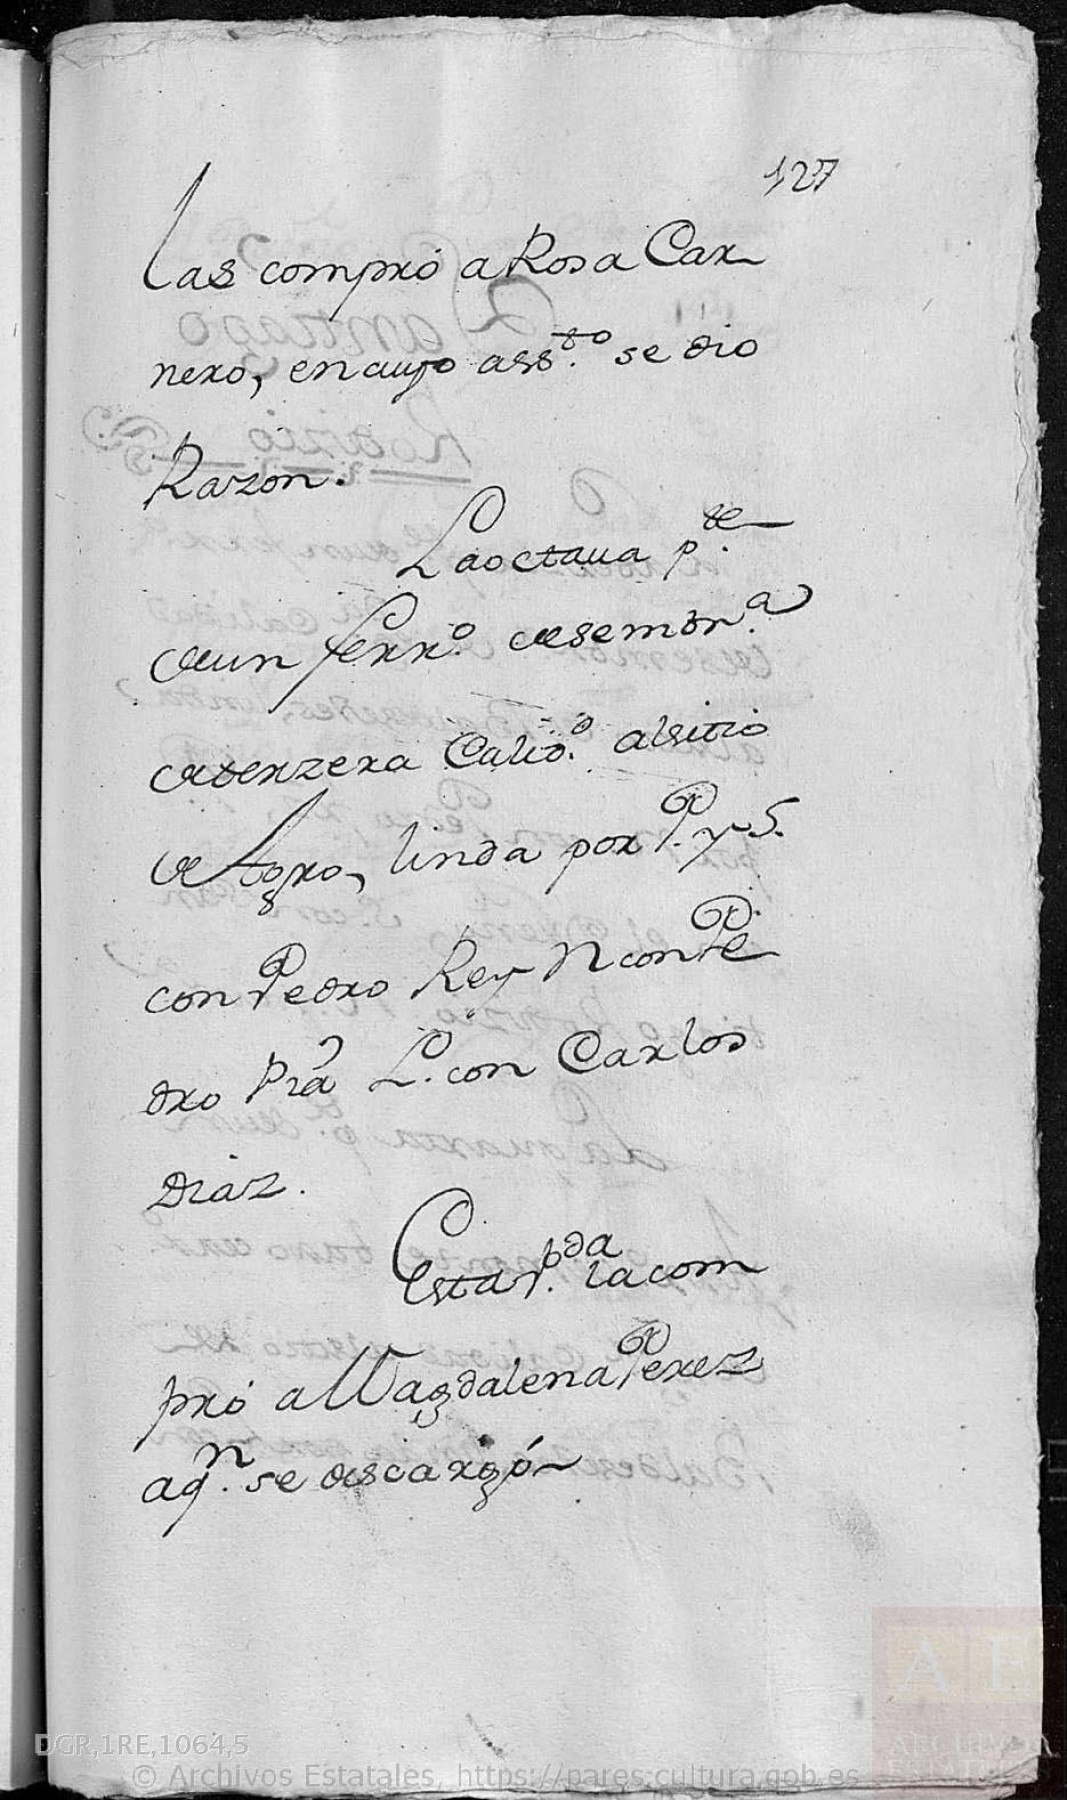 127
las compró a Rosa Car
nero, en cuyo ass.to se dio
Razon.
La octaua p.te
de un ferr.o de sembr.a
de terzera Calid.d al sitio
de Agro, linda por P. y S.
con Pedro Rey N con Pe
dro Pra L. con Carlos
Diaz.
Esta p.da la com
pró a Magdalena Perez
a q.n se descargó
DGR,1RE,1064,5
© Archivos Estatales, https://pares.cultura.gob.es
AE